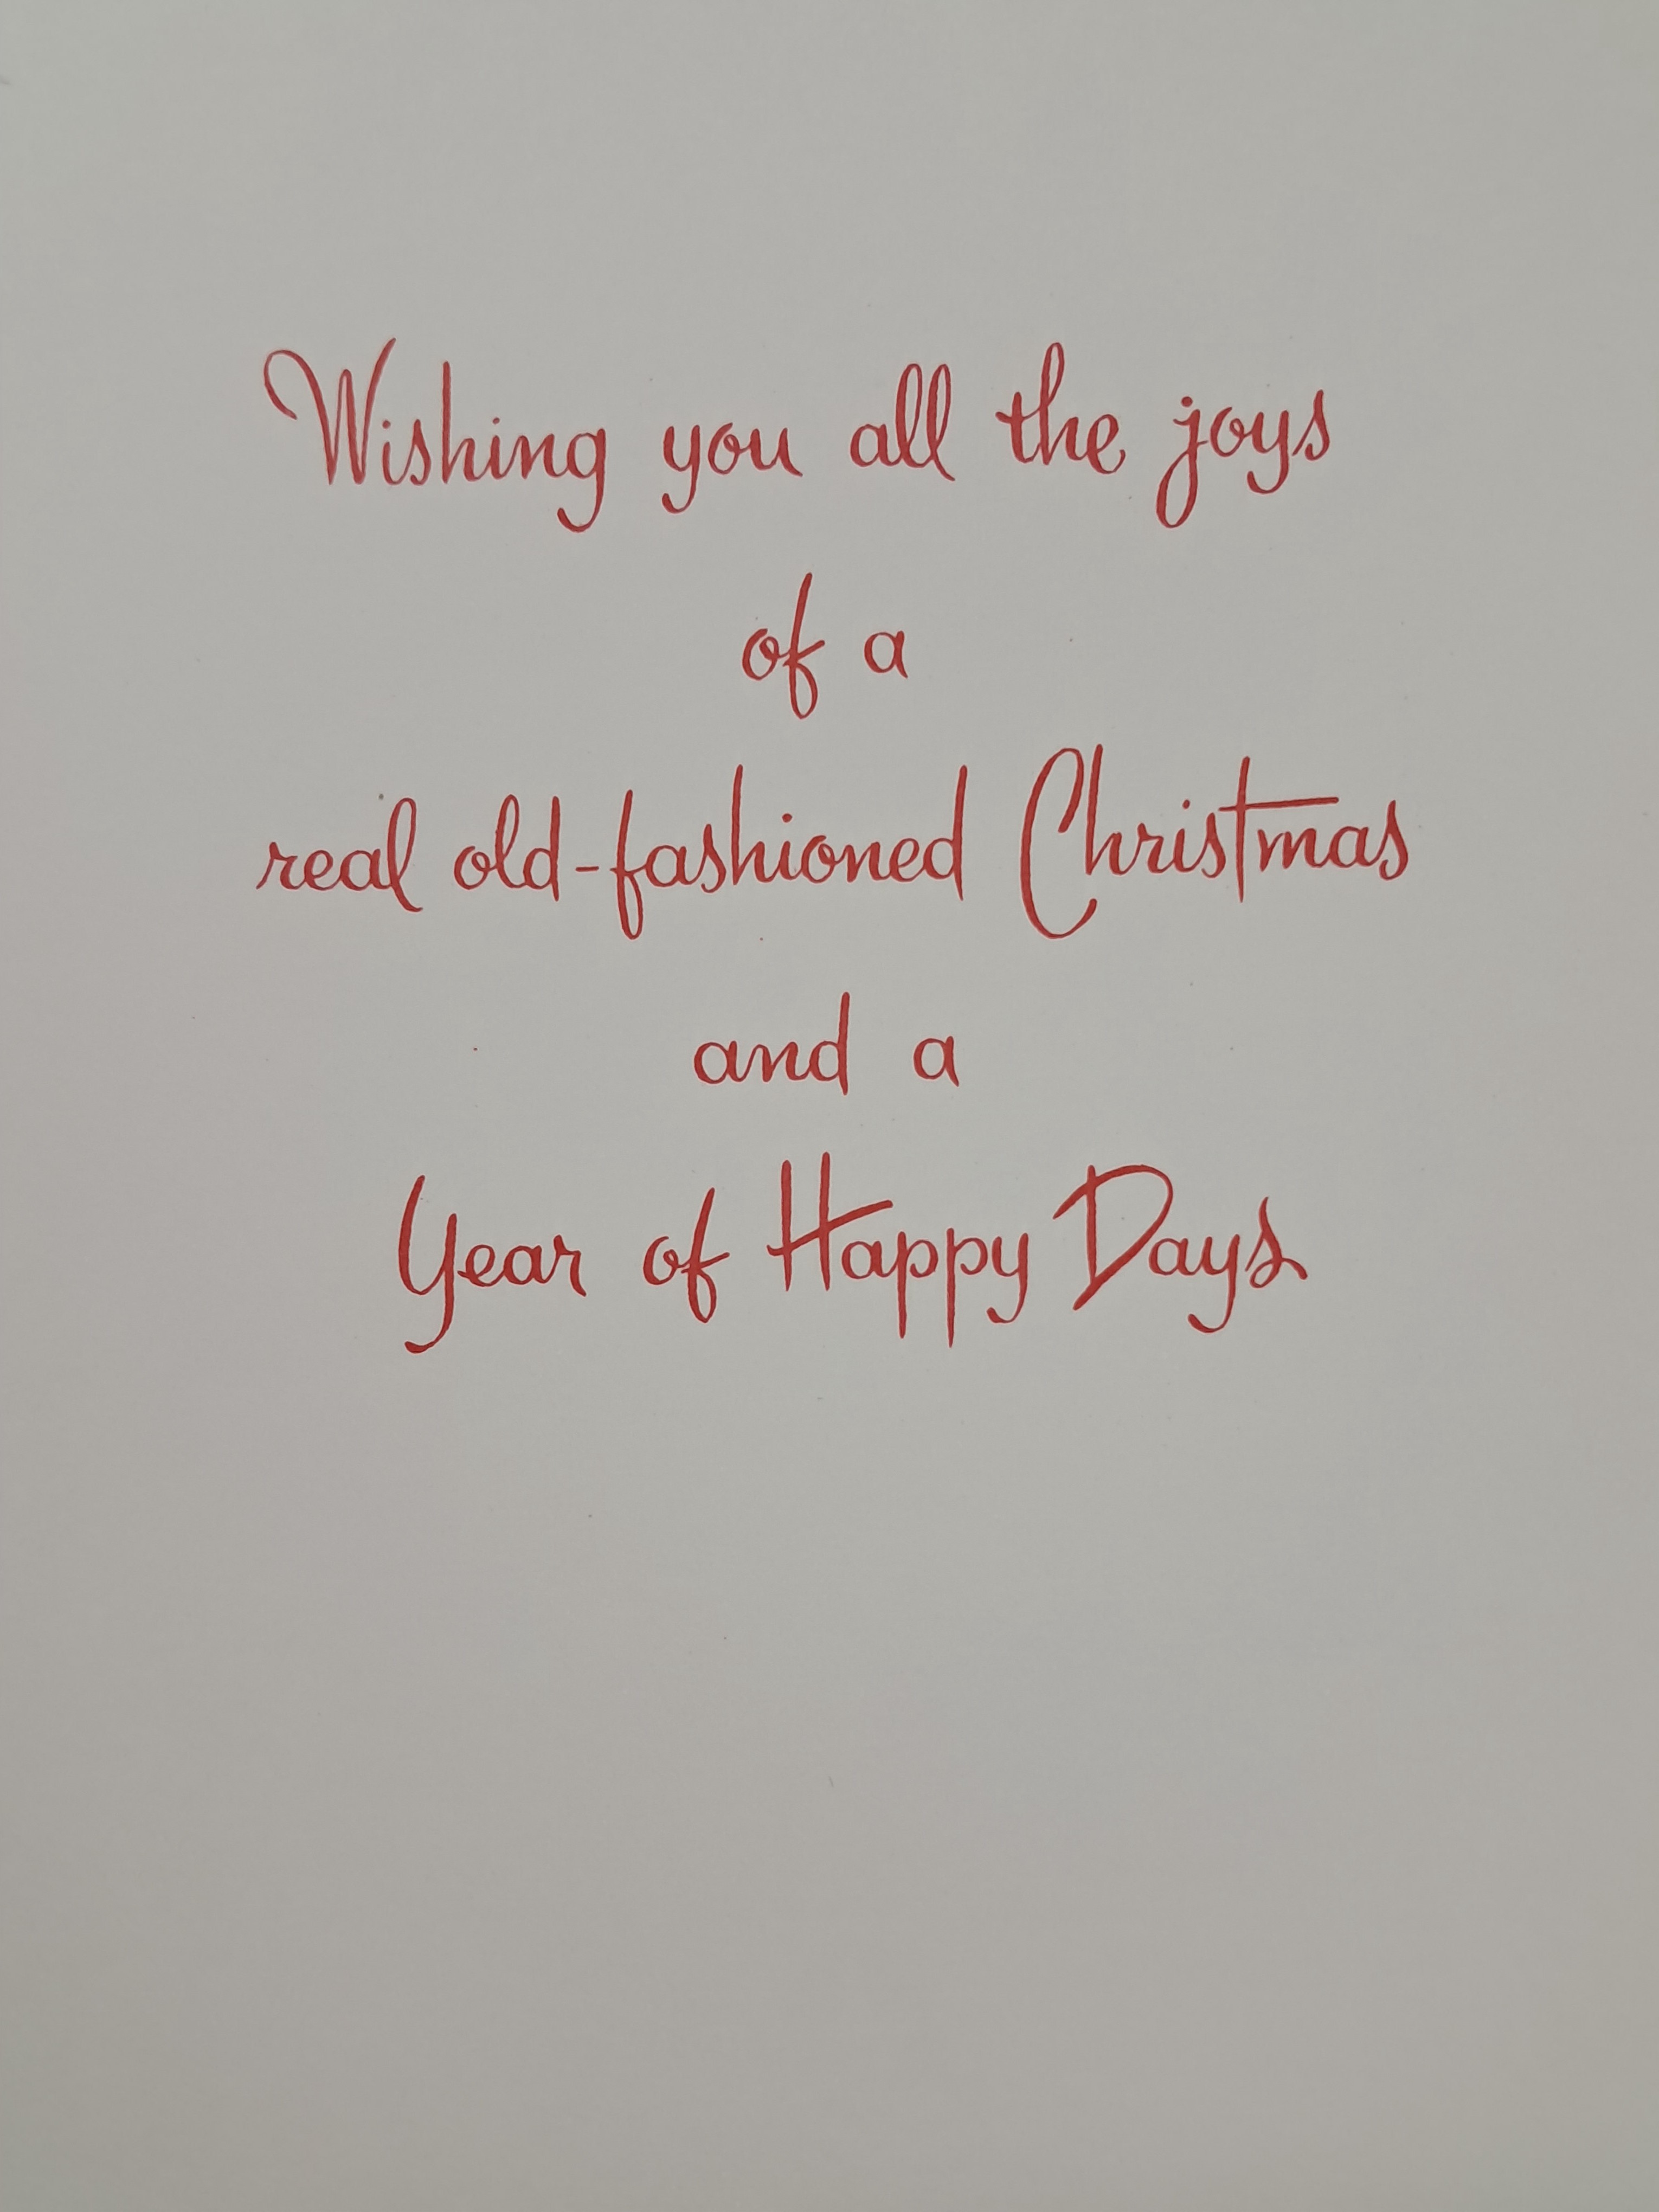 Wishing you all the joys
of a
real old-fashioned Christmas
and a
Year of Happy Days